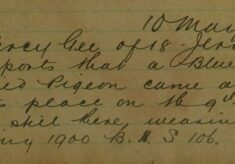 10 May
ercy Gee of 18 Jer
ports that a Blue
ed Pigeon came a
s place on the 9th
still here, wearin
ing 1900 B. H. S 106.